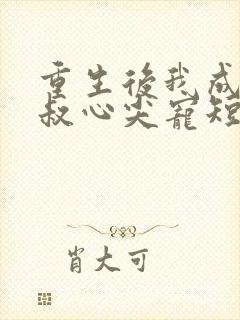 重生後我成
叔心尖寵短
肖大可